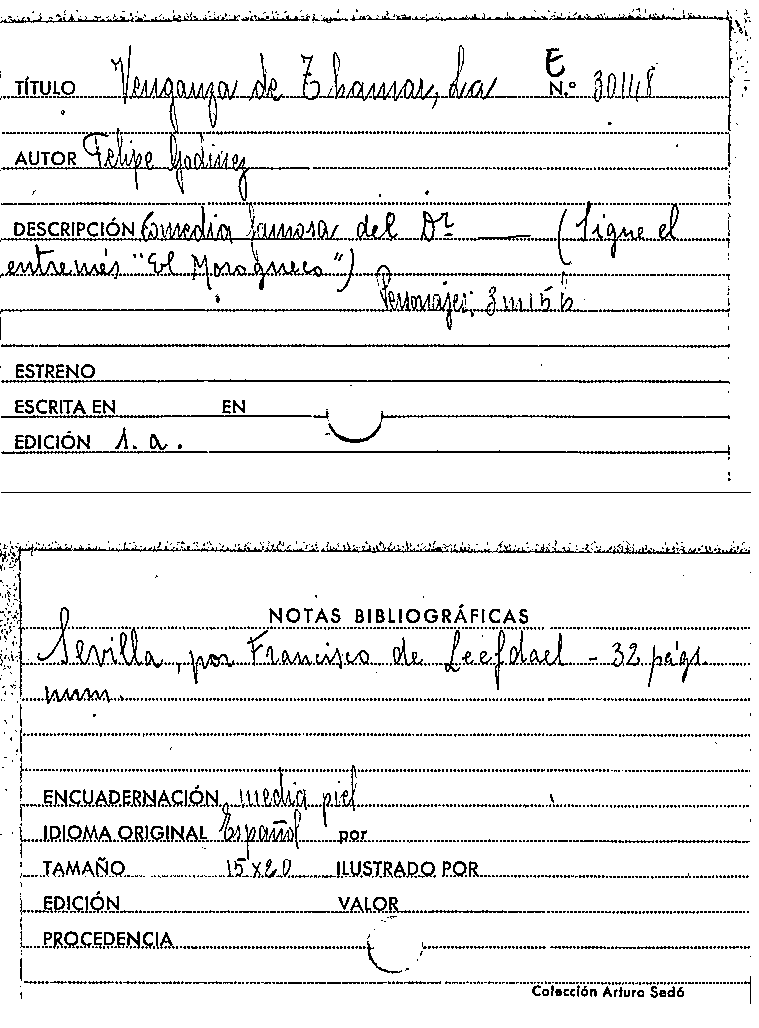 E
TÍTULO Venganza de Thamar, La N.º 30148
AUTOR Felipe Godinez
DESCRIPCIÓN Comedia famosa del Dr. ___ (Sigue el
entremés "El Moragueco")
Personajes: 3 m 15 h
ESTRENO
ESCRITA EN EN
EDICIÓN s. a.
NOTAS BIBLIOGRÁFICAS
Sevilla, por Francisco de Leefdael - 32 págs.
num.
ENCUADERNACIÓN media piel
IDIOMA ORIGINAL Español por
TAMAÑO 15 x 20 ILUSTRADO POR
EDICIÓN VALOR
PROCEDENCIA
Colección Arturo Sedó